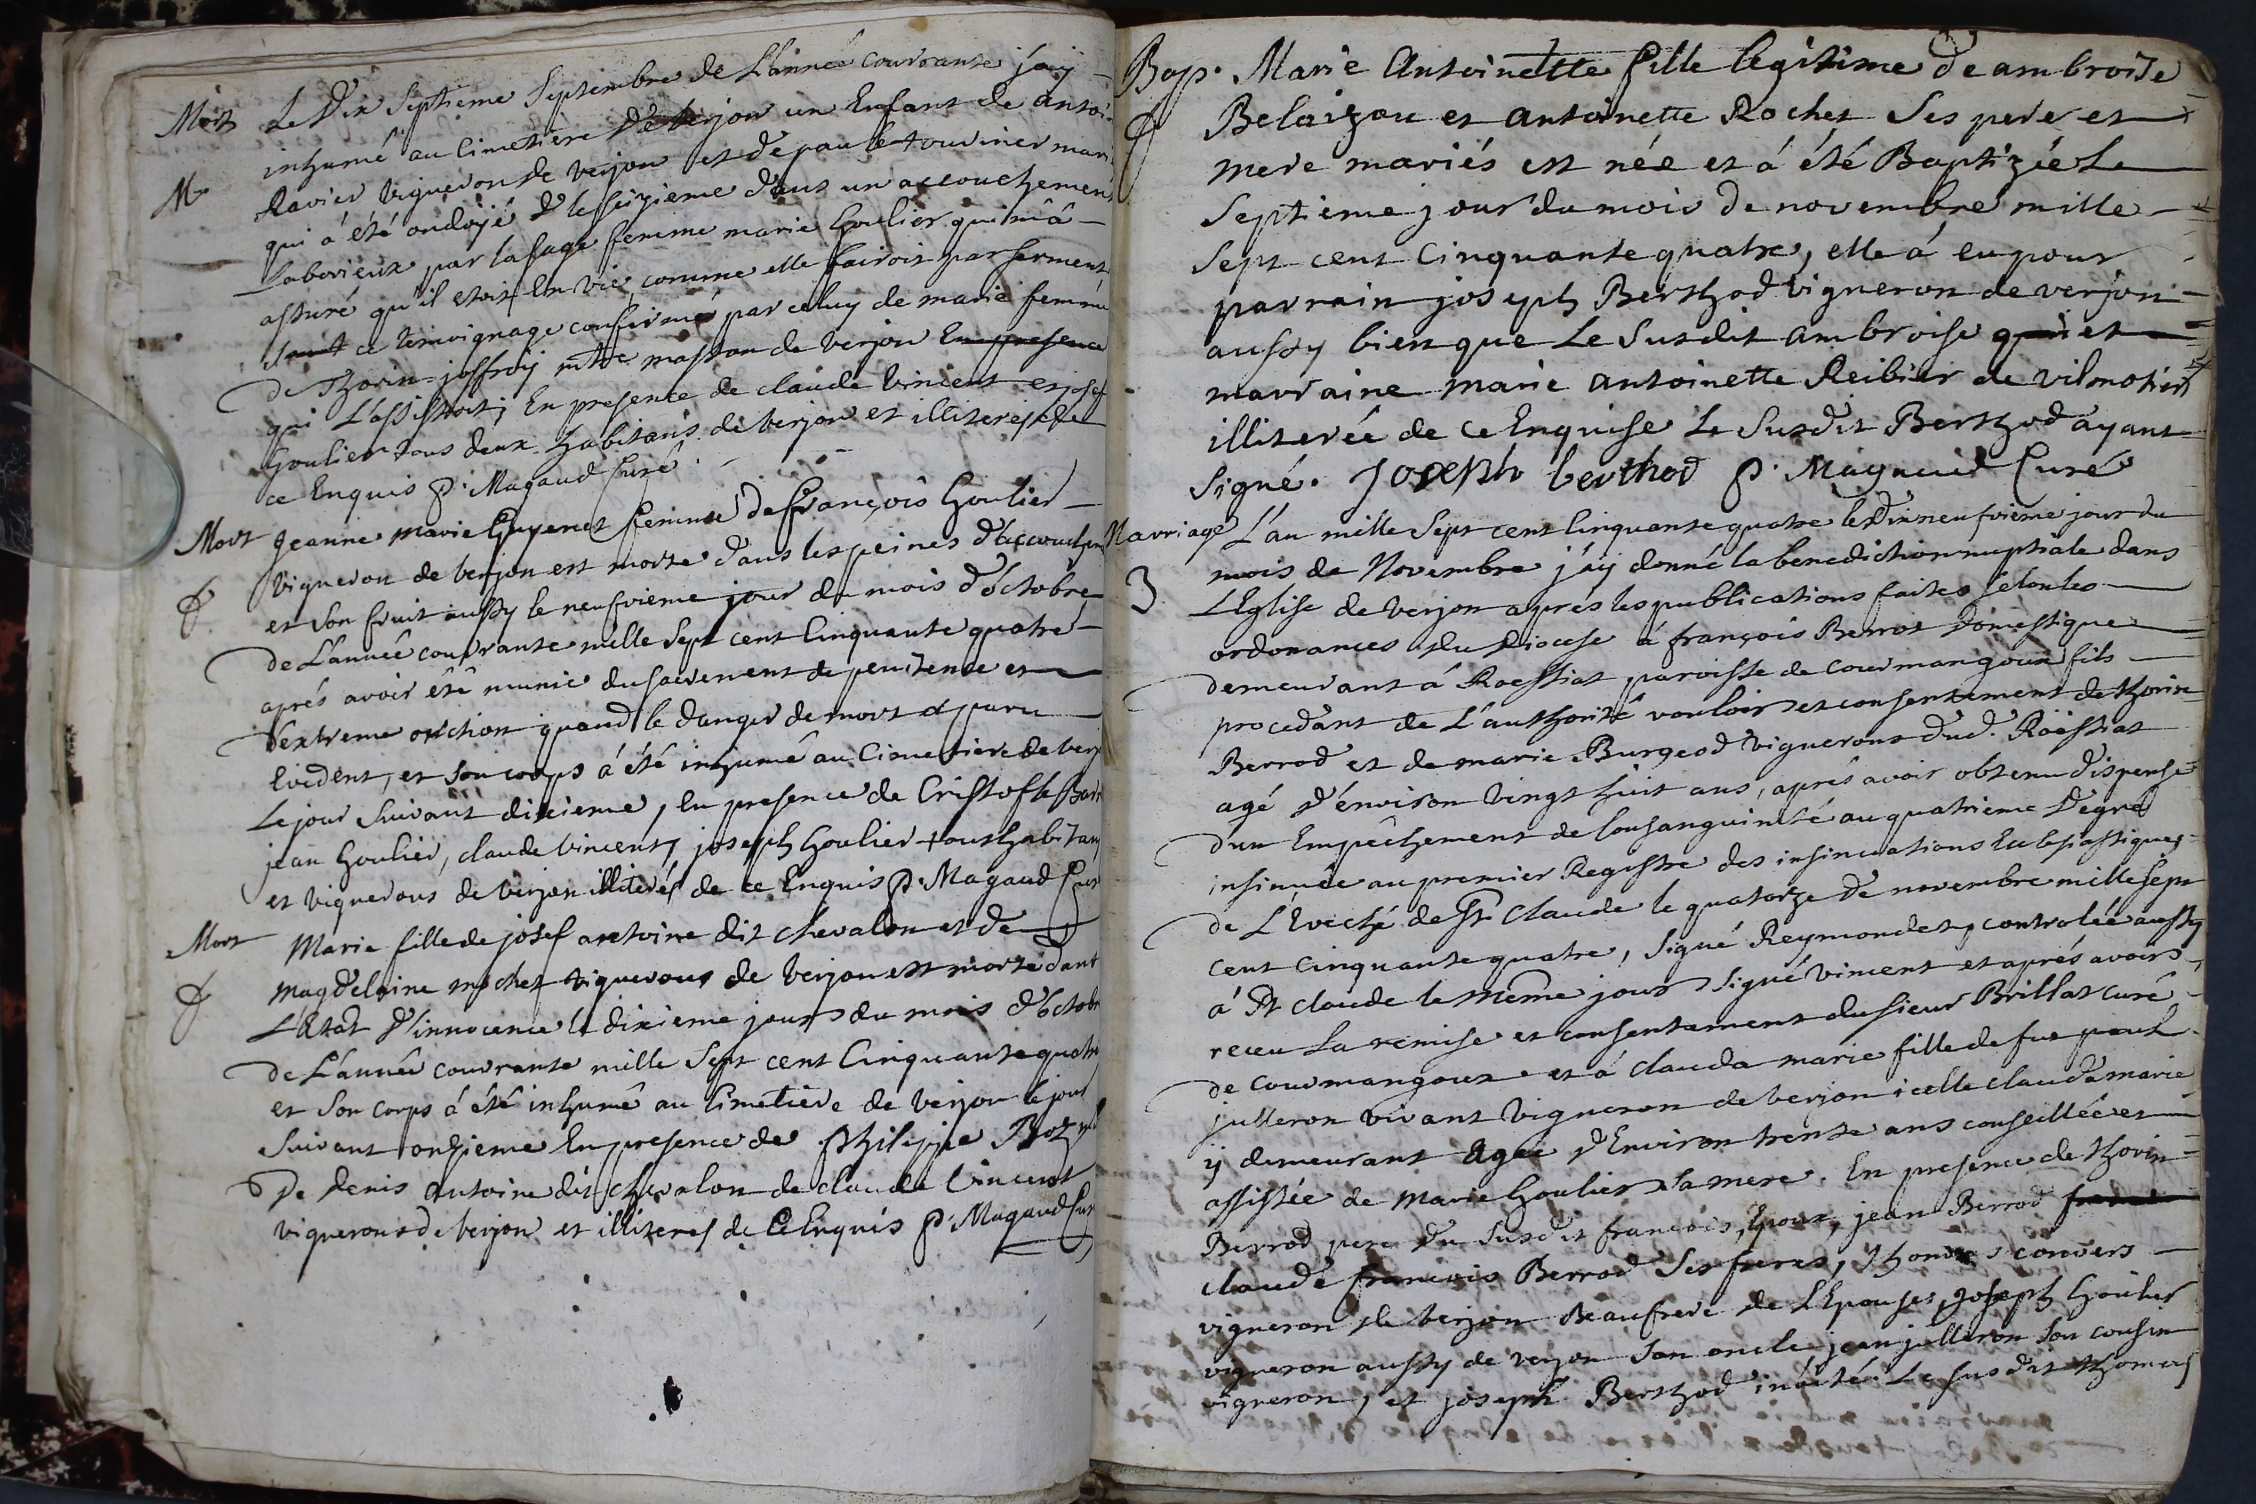 Mort Le Dix Septieme Septembre de L'année courrante j'ay
inhumé au Cimetiere de Verjon un Enfant de antoi
M Ravier Vigneron de Verjon et de paule Tourinier mari
qui á été ondoÿé le seizieme dans un accouchement
Laborieux par la sage femme marie Goulier qui m'a
assuré qu'il etoit En vie, comme elle fairoit par serment
ce temoignage confirmé par celuy de marie femme
de Thorin joffroÿ mtre masson de verjon
qui L'assistoit; En presence de claude Vincent et josef
Goulier tous deux habitans de Verjon et illiterés de
ce Enquis P. Magaud Curé
Mort Jeanne Marie Guyenet femme de françois Goulier
Vigneron de Verjon est morte dans les peines d'accouchem
et Son fruit aussy le neufvieme jour du mois d'octobre
de L'année courrante mille Sept cent Cinquante quatre
aprés avoir été munie du sacrement de penitence et
d'extreme onction quand le danger de mort a paru
Evident, et Son corps á été inhumé au Cimetiere de Verj
Le jour Suivant dixieme, En presence de Cristofle
jean Goulier, claude Vincent, joseph Goulier tous habitans
et Vignerons de Verjon illiterés de ce Enquis P. Magaud Cur
Mort Marie fille de josef antoine dit chevalon et de
Magdelaine mochet vignerons de Verjon est morte dans
L'Etat d'innocence le dixieme jour du mois d'octobr
de L'année courrante mille Sept cent Cinquante quatre
et Son corps á été inhumé au Cimetiere de Verjon le jour
Suivant onzieme En presence de philippe
De denis antoine dit chevalon de claude Vincent
vignerons de Verjon et illiterés de Ce Enquis P. Magaud Cur
Bap. Marie Antoinette fille legitime de ambroise
Belaizou et antoinette Rochet Ses pere et
mere mariés est née et á été Baptizée Le
Septieme jour du mois de novembre mille
Sept cent Cinquante quatre, elle á eu pour
parrain joseph Berthod vigneron de verjon
aussy bien que Le Susdit ambroise et
marraine marie antoinette Reibier de vilmotier
illiterée de ce Enquise Le Susdit Berthod ayant
Signé. Joseph berthod P. Magaud Curé
Marriage L'an mille Sept cent Cinquante quatre le Dixneufvieme jour du
3 mois de Novembre j'áy donné la benediction nuptiale dans
L'Eglise de Verjon aprés les publications faites selon les
ordonances du Diocese á françois Berrod domestique
demeurant á Roissiat paroisse de courmangoux fils
procedant de L'authorité vouloir et consentement de thorin
Berrod et de marie Burgeod Vignerons dud. Roissiat
agé d'énviron Vingt huit ans, aprés avoir obtenu dispense
d'un Empêchement de Consanguinité au quatrieme degré
insinuée au premier Registre des insinuations Ecclesiastiques
de L'Eveché de St Claude le quatorze de novembre mille sept
cent cinquante quatre, Signé Reymondet, controlée aussy
á St claude le même jour signé vincent et aprés avoir
receu La remise et consentement du sieur Brillat curé
de courmangoux et á clauda marie fille de fue paul
julleron vivant Vigneron de verjon icelle clauda marie
ÿ demeurant Agée d'Environ trente ans conseillée et
assistée de Marie Goulier Sa mere. En presence de thorin
Berrod pere du Susdit françois, Epoux, jean Berrod
claude françois Berrod Ses freres, thomas convers
vigneron de Verjon Beaufrere de L'Epouse, joseph Goulier
vigneron aussy de verjon Son oncle jean julleron Son cousin
vigneron, et joseph Berthod invité. Le susdit thomas